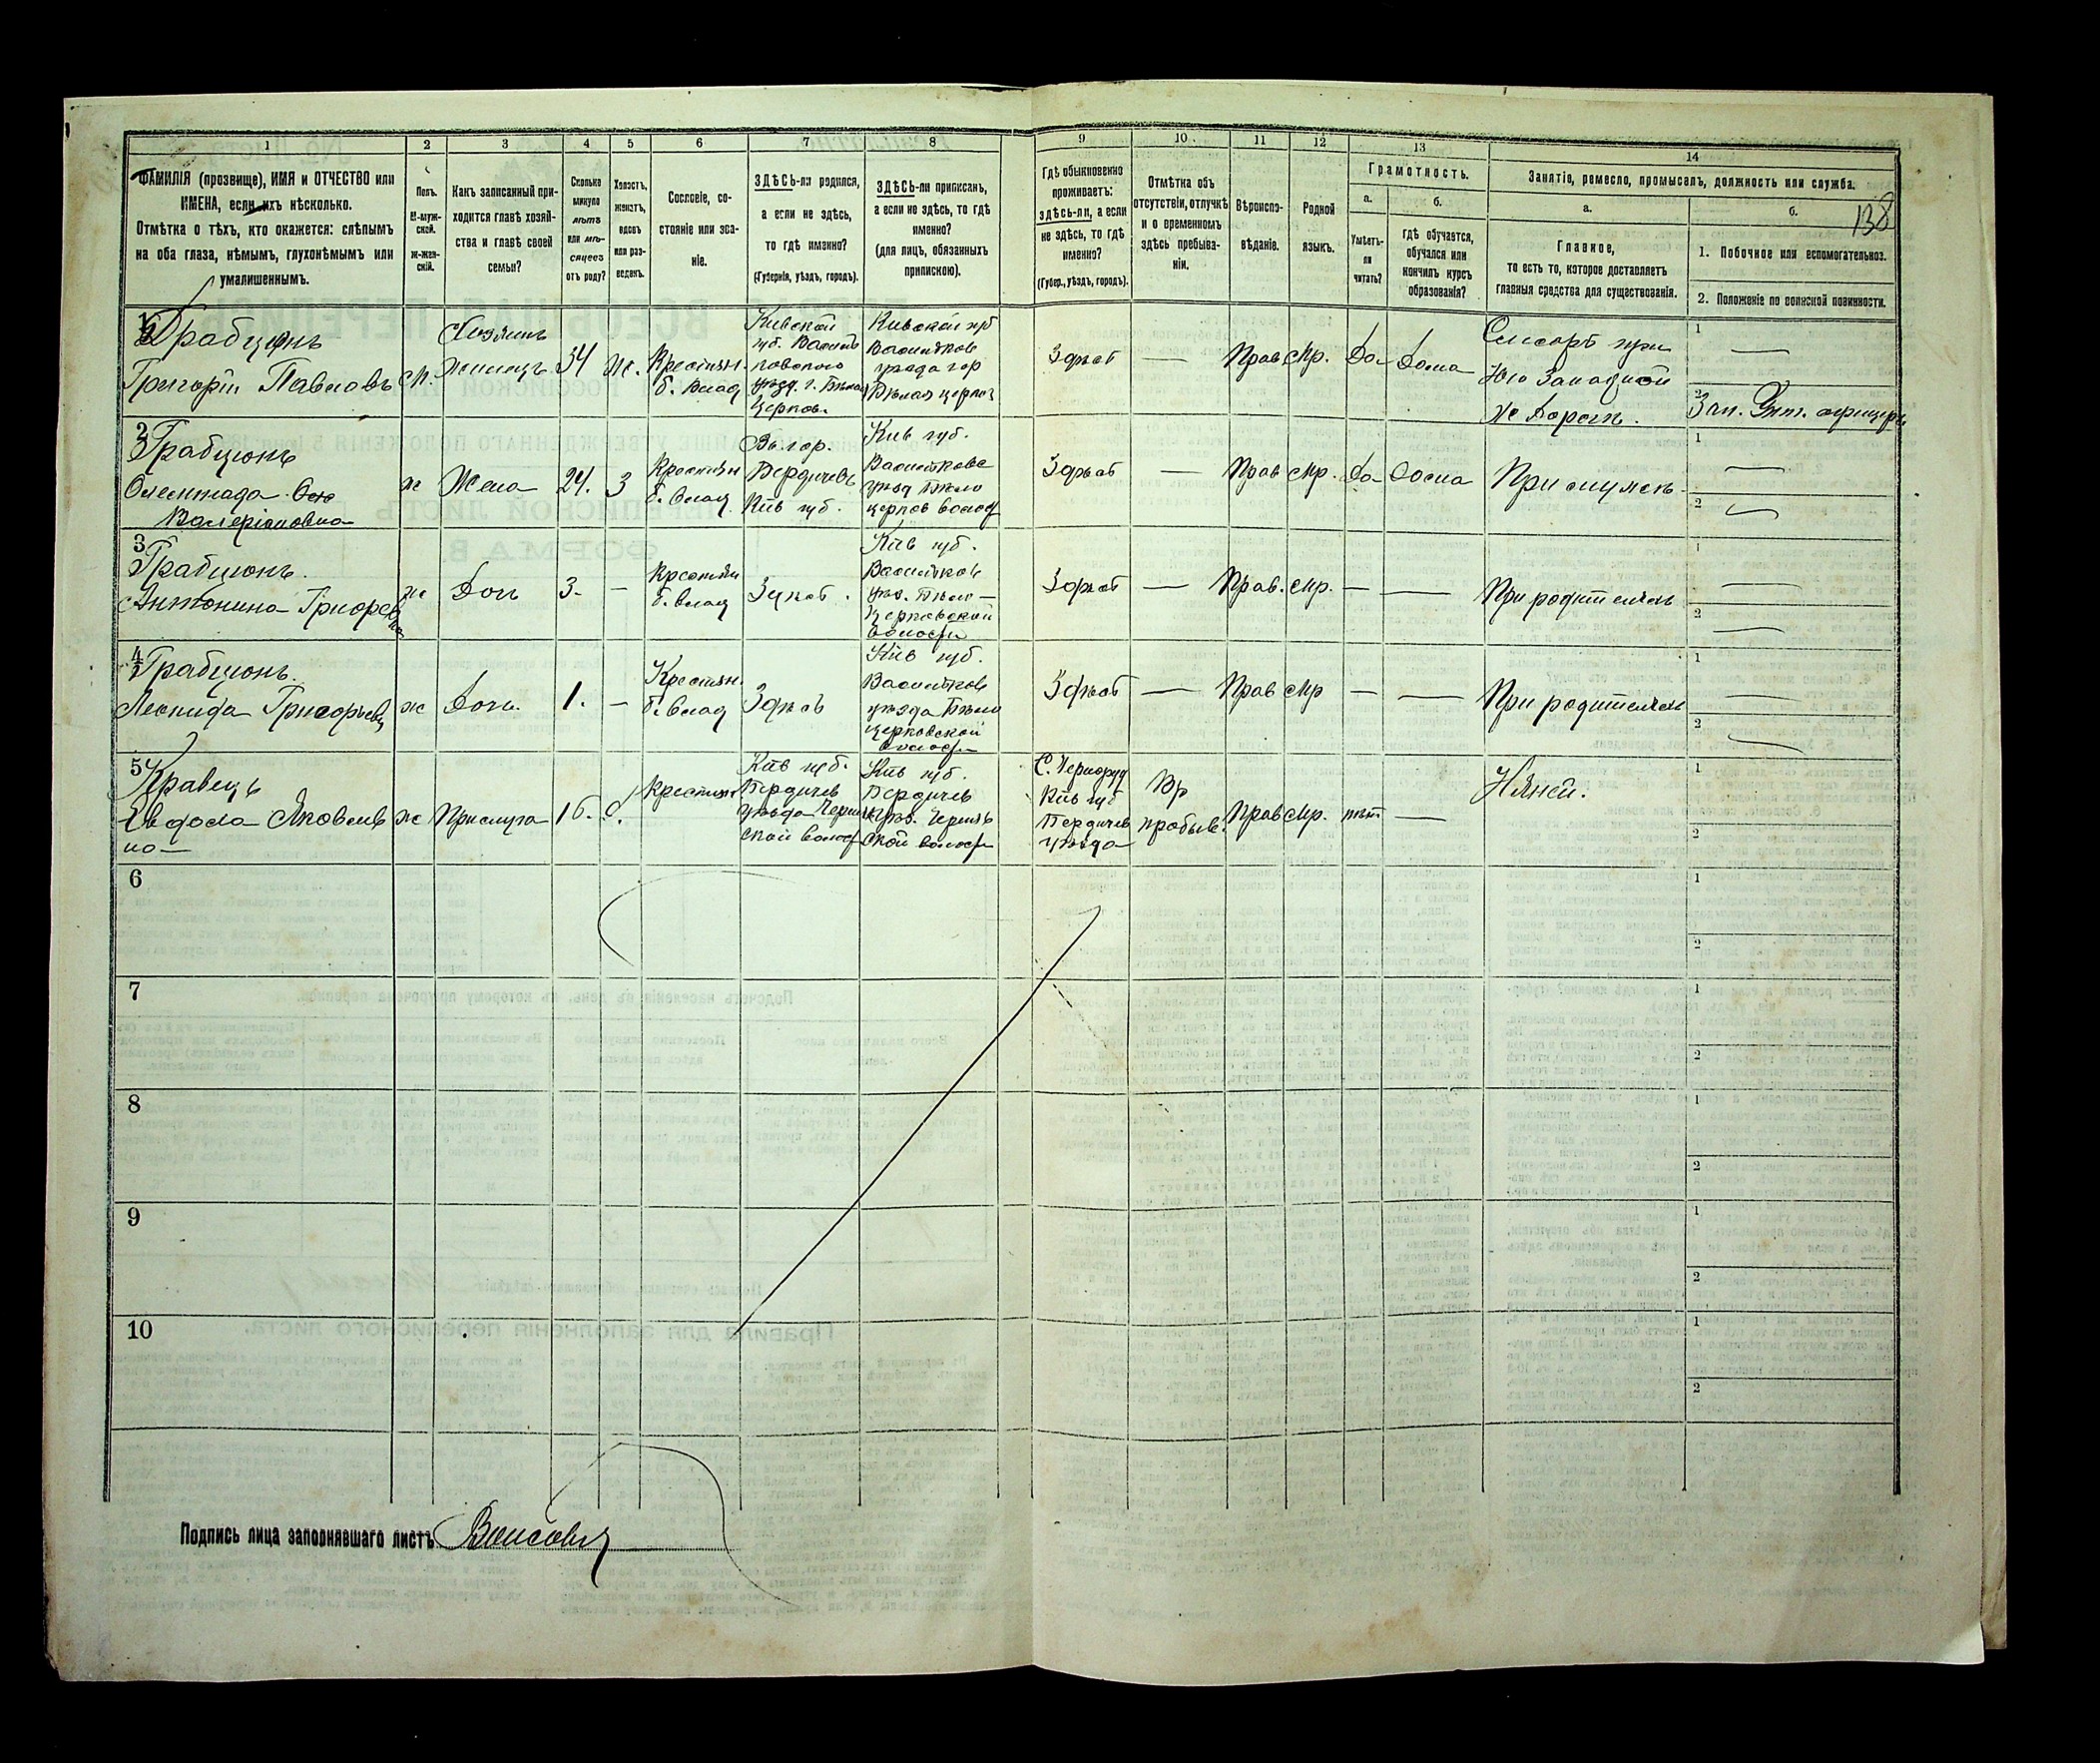 138
1 2 3 4 5 6 7 8 9 10 11 12 13 14
ФАМИЛІЯ (прозвище), ИМЯ и ОТЧЕСТВО или
ИМЕНА, если ихъ нѣсколько.
Отмѣтка о тѣхъ, кто окажется: слѣпымъ
на оба глаза, нѣмымъ, глухонѣмымъ или
умалишеннымъ.
Полъ.
М-муж-
ской.
Ж-жен-
скій.
Какъ записанный при-
ходится главѣ хозяй-
ства и главѣ своей
семьи?
Сколько
минуло
лѣтъ
или мѣ-
сяцевъ
отъ роду?
Холостъ,
женатъ,
вдовъ
или раз-
веденъ.
Сословіе, со-
стояніе или зва-
ніе.
ЗДѢСЬ-ли родился,
а если не здѣсь,
то гдѣ именно?
(Губернія, уѣздъ, городъ).
ЗДѢСЬ-ли приписанъ,
а если не здѣсь, то гдѣ
именно?
(для лицъ, обязанныхъ
припискою).
Гдѣ обыкновенно
проживаетъ:
здѣсь-ли, а если
не здѣсь, то гдѣ
именно?
(Губер., уѣздъ, городъ).
Отмѣтка объ
отсутствіи, отлучкѣ
и о временномъ
здѣсь пребыва-
ніи.
Вѣроиспо-
вѣданіе.
Родной
языкъ.
Грамотность.
а.
Умѣетъ-
ли
читать?
б.
гдѣ обучается,
обучался или
кончилъ курсъ
образованія?
Занятіе, ремесло, промыселъ, должность или служба.
а.
Главное,
то есть то, которое доставляетъ
главныя средства для существованія.
б.
1. Побочное или вспомогательное.
2. Положеніе по воинской повинности.
1
Грабцюнъ
Григорій Павловъ
М.
Хозяинъ
Жилецъ
34
Ж.
Крестьян.
б. влад
Кивской
губ. Василь
ковского
уѣзд. г. Бѣлая
Церков.
Кивской губ
Васильков
уѣзда гор
Бѣлая церков
Здѣсь
—
Прав
Мр.
Да
Дома
Слесарь при
Юго Западной
Ж Дорогѣ.
1 —
2 Зап. Унт. офицеръ
2
Грабцюнъ
Валеріановна
ж
Жена
24.
З
Крестьян
б. влад
Въ гор.
Бердичевѣ
Кив губ.
Кив губ.
Васильков
уѣзд Бѣло
церков волос
Здѣсь
—
Прав
Мр.
Да
Дома
При мужѣ
1 —
2 —
3
Грабцюнъ.
Антонина Григорьевна
ж
Дочь
3
—
Крестьян
б. влад
Здѣсь.
Кив губ.
Васильков
уѣз. Бѣло
Церковской
волости
Здѣсь
—
Прав.
Мр.
—
—
При родителяхъ
1 —
2 —
4
Грабцюнъ.
Леонида Григорьевн
ж
Дочь.
1.
—
Крестьян.
б. влад
Здѣсь
Кив губ.
Васильков
уѣзда Бѣло
церковской
волости
Здѣсь
—
Прав
Мр
—
—
При родителяхъ
1 —
2 —
5
Кравецъ
Евдоха Яковлев
на
ж
Прислуга
16.
Крестьян
Кив губ.
Бердичев
уѣзда
ской волос
Кив губ.
Бердичев
уѣз.
ской волости
С. Черноруд
Кив губ
Бердичев
уѣзда
Вр
пробыв.
Прав
Мр.
нѣт
—
Няней.
1
2
6
1
2
7
1
2
8
1
2
9
1
2
10
1
2
Подпись лица заполнявшаго листъ